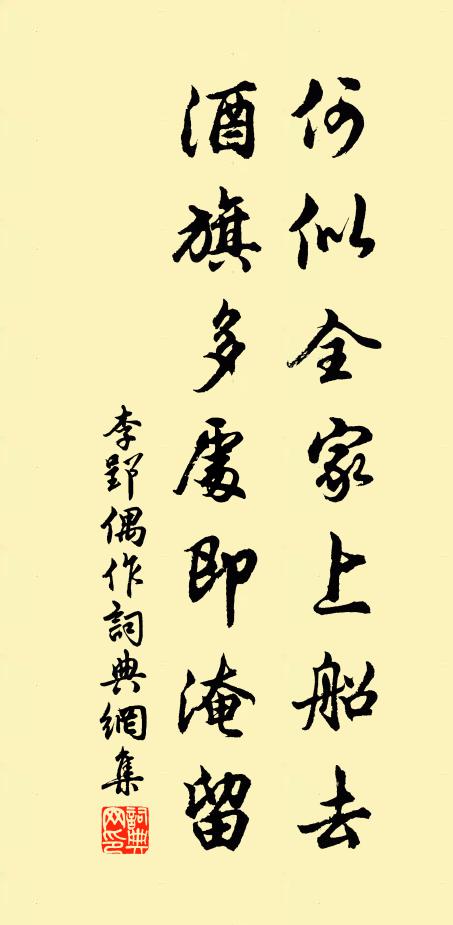 何似全家上船去
酒旗多處即淹留
李郢偶作詞典網集
詞典网印